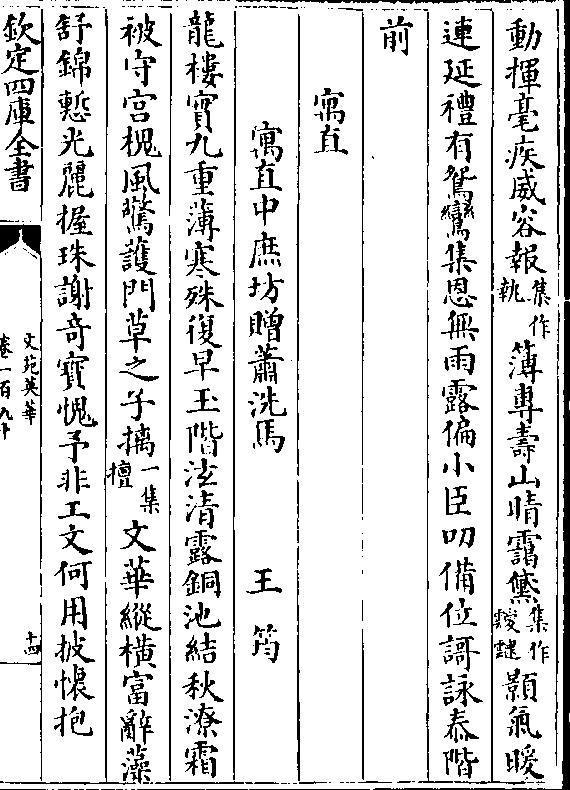 動揮毫疾威容報集作執薄專壽山晴靄黛集作靉靆顥氣暖
連延禮有鴛鸞集恩無雨露偏小臣叨備位謌詠泰階
前
寓直
寓直中庶坊贈蕭洗馬　王筠
龍樓實九重薄寒殊復早玉階泫清露銅池結秋潦霜
被守宮槐風驚護門草之子摛一集擅文華縱橫富辭藻
舒錦慙光麗握珠謝竒寶愧予非工文何用披懷抱
欽定四庫全書
文苑英華
卷一百九十
十四